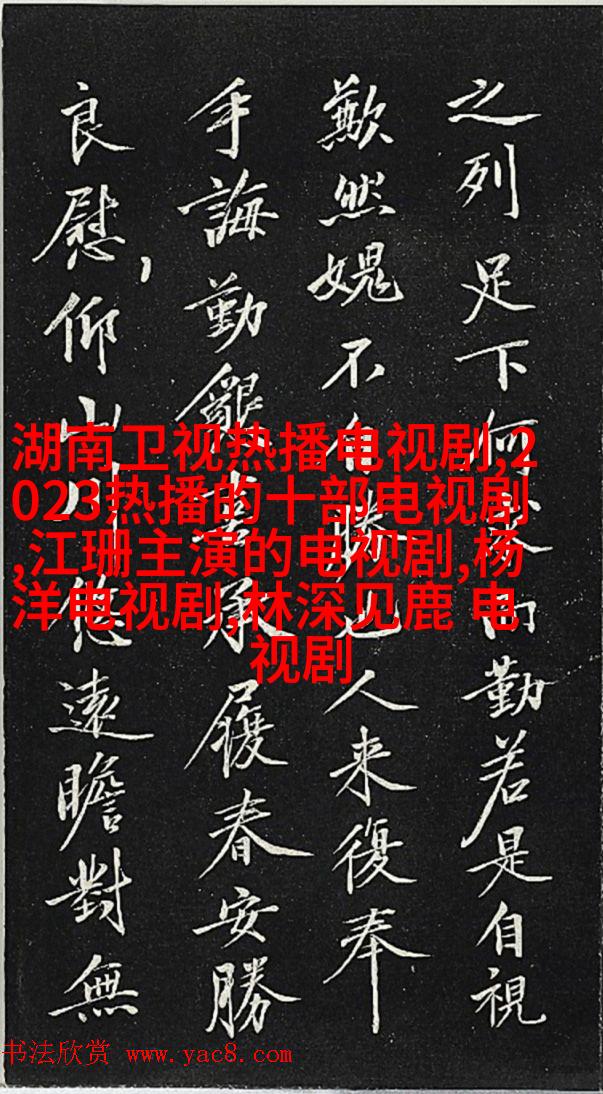 之列足下何而勤若是自視
歉然媿不自勝也人来復奉
手誨勤懇喜承履春安勝
良慰，仰山川悠遠瞻對無
湖南卫视热播电视剧,2
023热播的十部电视剧
,江珊主演的电视剧,杨
洋电视剧,林深见鹿 电
视剧
书法欣赏 www.yac8.com